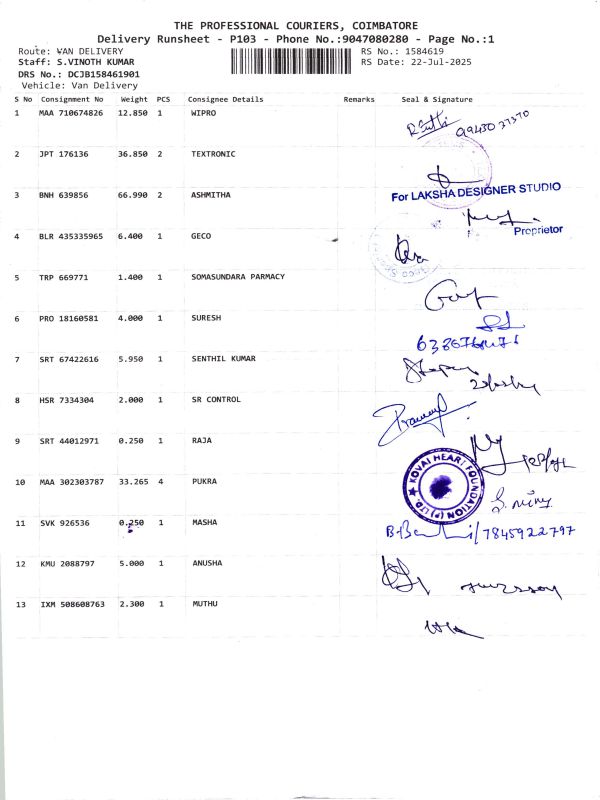 THE PROFESSIONAL COURIERS, COIMBATORE
Delivery Runsheet - P103 - Phone No.:9047080280 - Page No.:1
Route: VAN DELIVERY RS No.: 1584619
Staff: S.VINOTH KUMAR RS Date: 22-Jul-2025
DRS No.: DCJB158461901
Vehicle: Van Delivery
S No Consignment No Weight PCS Consignee Details Remarks Seal & Signature
1 MAA 710674826 12.850 1 WIPRO
2 JPT 176136 36.850 2 TEXTRONIC
3 BNH 639856 66.990 2 ASHMITHA
For LAKSHA DESIGNER STUDIO
Proprietor
4 BLR 435335965 6.400 1 GECO
5 TRP 669771 1.400 1 SOMASUNDARA PARMACY
6 PRO 18160581 4.000 1 SURESH
7 SRT 67422616 5.950 1 SENTHIL KUMAR
8 HSR 7334304 2.000 1 SR CONTROL
9 SRT 44012971 0.250 1 RAJA
10 MAA 302303787 33.265 4 PUKRA
KOVAI HEART FOUNDATION (P) LTD.
11 SVK 926536 0.250 1 MASHA
7845922797
12 KMU 2088797 5.000 1 ANUSHA
13 IXM 508608763 2.300 1 MUTHU